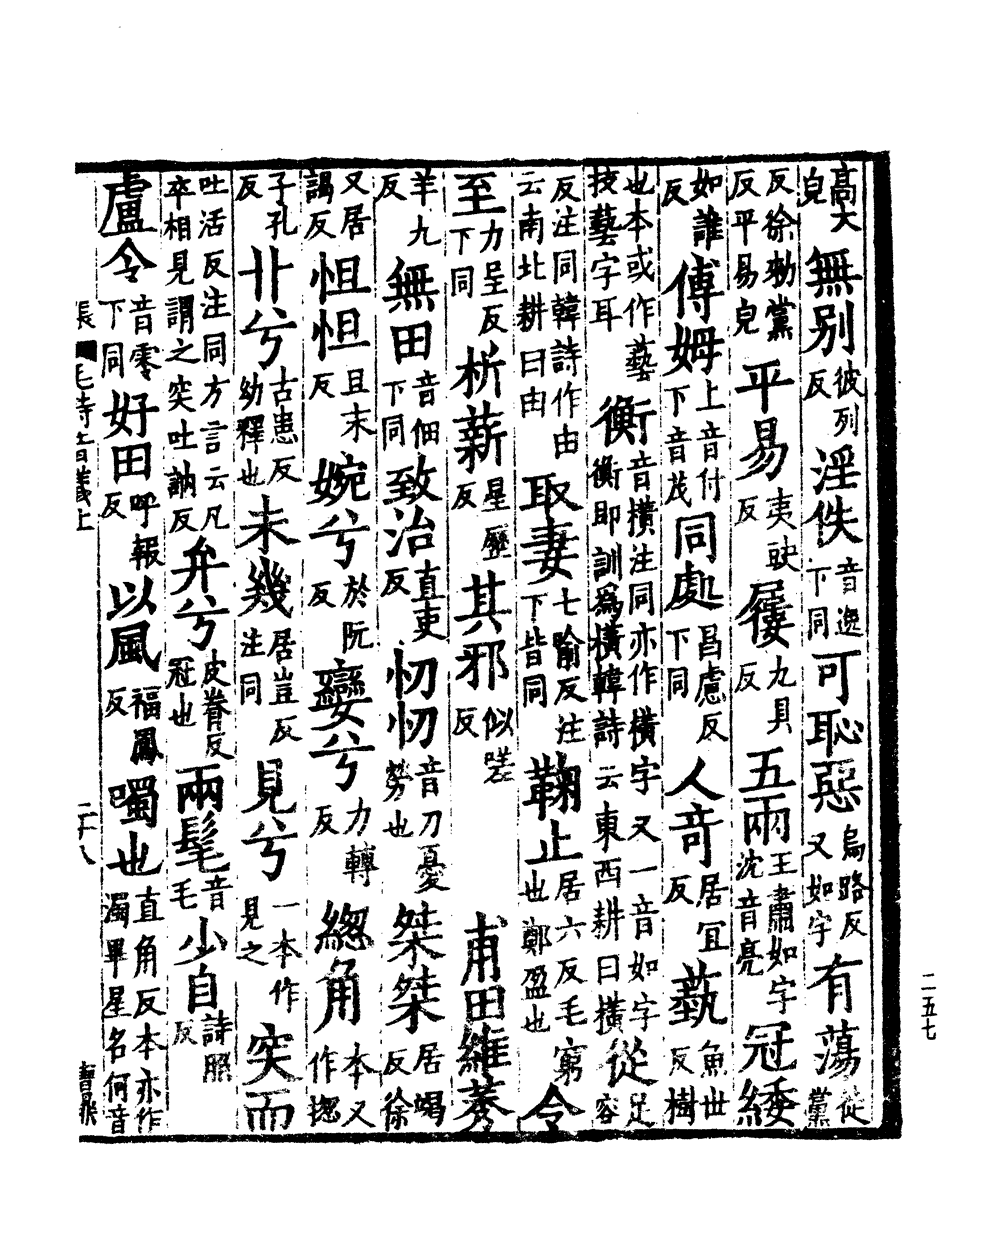 高大皃無别彼列反淫佚音逸下同可恥惡烏路反又如字有蕩徒黨
反徐勑黨反平易皃平易夷豉反屨九具反五兩王肅如字沈音亮冠緌
如誰反傅姆上音付下音茂同處昌慮反下同人奇居宜反蓺魚世反樹
也本或作藝技藝字耳衡音橫注同亦作橫字又一音如字衡即訓爲橫韓詩云東西耕曰橫從足容
反注同韓詩作由云南北耕曰由取妻七喻反注下皆同鞠止居六反毛窮也鄭盈也令
至力呈反下同析薪星歷反其邪似嗟反甫田維莠
羊九反無田音佃下同致治直吏反忉忉音刀憂勞也桀桀居竭反徐
又居謁反怛怛旦末反婉兮於阮反孌兮力轉反緫角本又作摠
子孔反丱兮古患反幼穉也未幾居豈反注同見兮一本作見之突而
吐活反注同方言云凡卒相見謂之突吐訥反弁兮皮眷反冠也兩髦音毛少自詩照反
盧令音零下同好田呼報反以風福鳳反噣也直角反本亦作濁畢星名何音
毛詩音義上
二十八
二五七